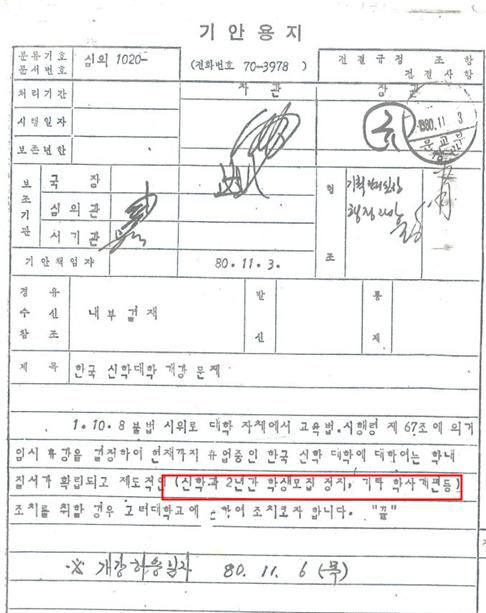 기안용지
분류기호
문서번호
심의 1020-
(전화번호 70-3978)
전결규정 조 항
전결사항
처리기간
차관
장관
시행일자
1980.11. 3
문교부
보존년한
보조기관
국장
심의관
서기관
협조
기안책임자
80.11.3.
경유
수신
참조
내부결재
발신
통제
제목
한국 신학대학 개강 문제
1.10.8 불법 시위로 대학 자체에서 교육법.시행령 제 67조에 의거
임시 휴강을 결정하여 현재까지 휴업중인 한국 신학 대학에 대하여는 학내
질서가 확립되고 제도적인 (신학과 2년간 학생모집 정지, 기타 학사개편등)
조치를 취할 경우 조치코자 합니다. "끝"
※ 개강허용일자 80.11.6 (목)